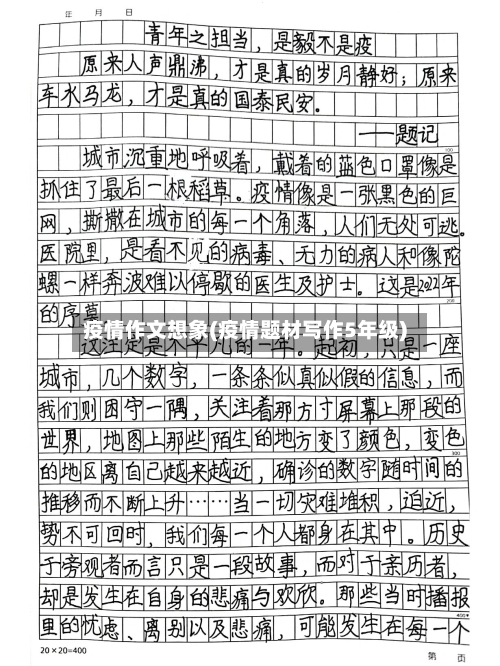 年 月 日
青年之担当，是毅不是疫
原来人声鼎沸，才是真的岁月静好；原来
车水马龙，才是真的国泰民安。
——题记
100
城市沉重地呼吸着，戴着的蓝色口罩像是
抓住了最后一根稻草。疫情像是一张黑色的巨
网，撕撒在城市的每一个角落，人们无处可逃。
医院里，是看不见的病毒、无力的病人和像陀
螺一样奔波难以停歇的医生及护士。这是2022年
200
的序幕
疫情作文想象(疫情题材写作5年级)
这注定是不平凡的一年。起初，只是一座
城市，几个数字，一条条似真似假的信息，而
我们则困守一隅，关注着那方寸屏幕上那段的
世界，地图上那些陌生的地方变了颜色，变色
300
的地区离自己越来越近，确诊的数字随时间的
推移而不断上升……当一切灾难堆积，迫近，
势不可回时，我们每一个人都身在其中。历史
于旁观者而言只是一段故事，而对于亲历者，
却是发生在自身的悲痛与欢欣。那些当时播报
400
里的忧虑、离别以及悲痛，可能发生在每一个
20×20=400
第 页